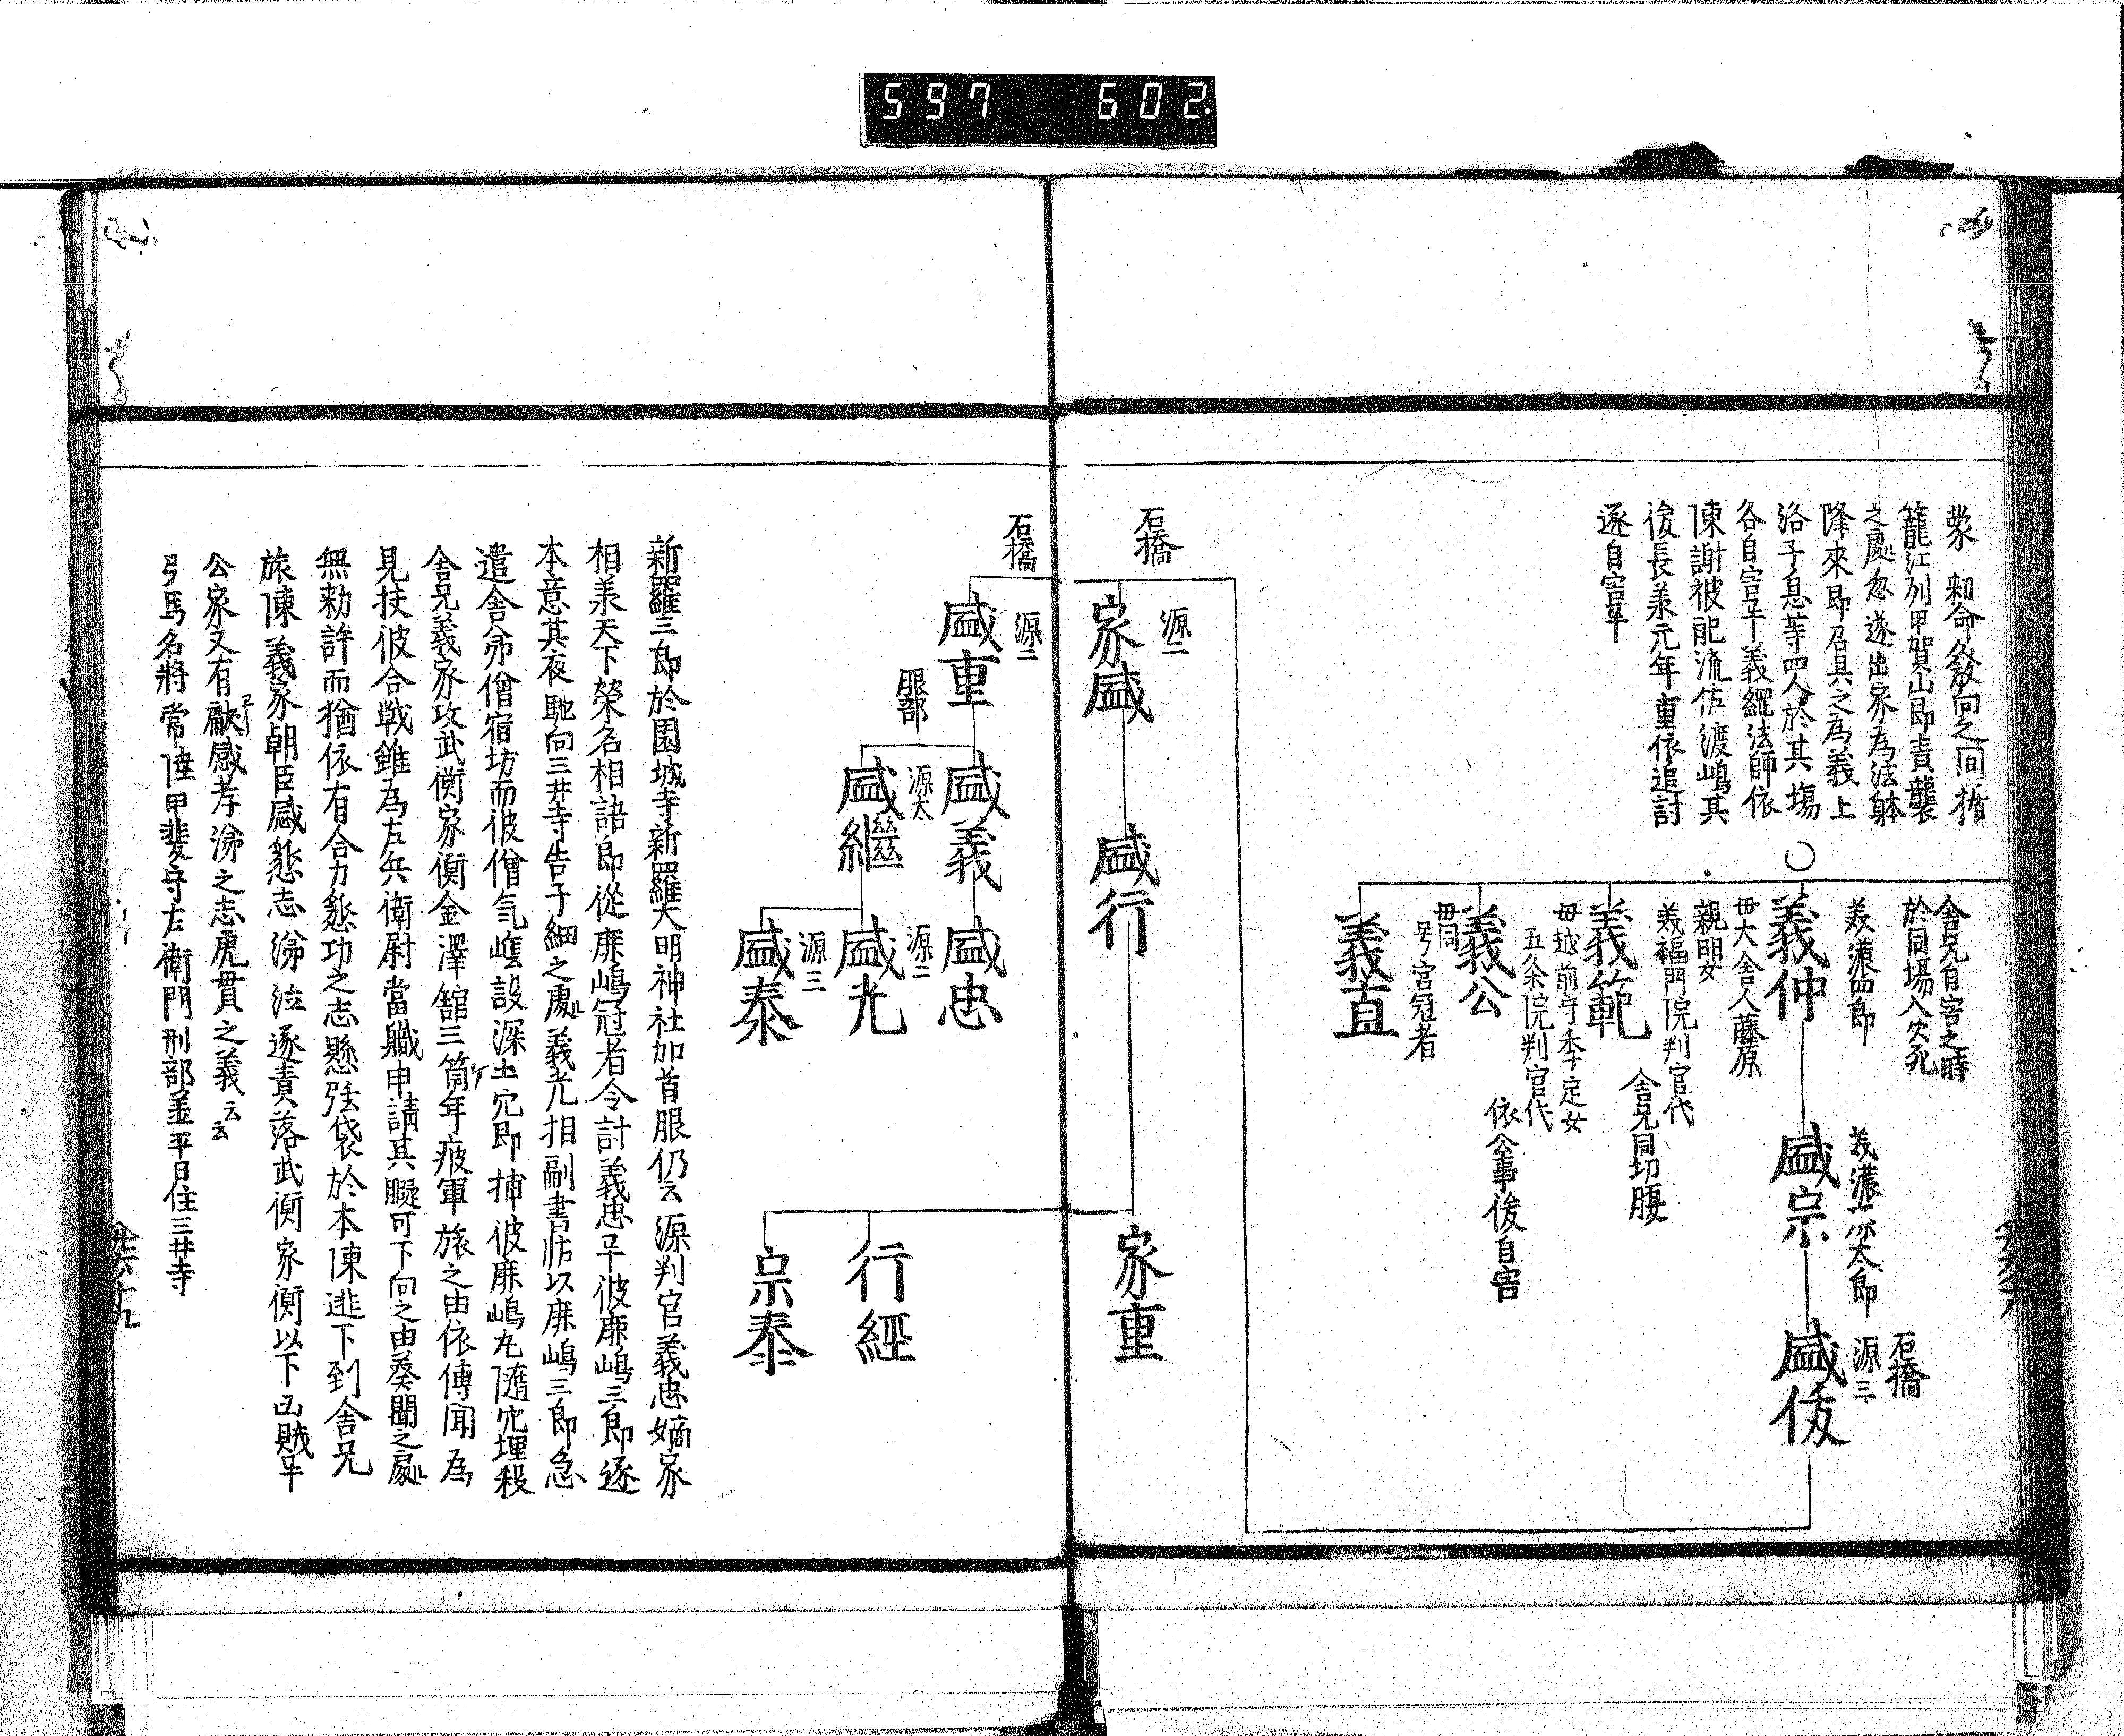 597 602
蒙 勅命発向之間楯
籠江列甲賀山即責襲
之處忽遂出家為法躰
降来即召具之為義上
洛子息等四人於其場
各自害畢義綱法師依
陳謝被配流佐渡嶋其
後長義元年重依追討
遂自害畢
舎兄自害之時
於同場入火死
義濃四郎
義仲
母大舎人藤原
親明女
義福門院判官代
義範
舎兄同切腹
母越前守季定女
五条院判官代
義公
依公事後自害
母同
号宮冠者
義直
義濃六太郎
盛宗
石橋
源三
盛俊
石橋
源二
家盛
盛行
家重
行経
宗泰
石橋
源二
盛重
盛義
盛忠
服部
源太
盛継
源二
盛光
源三
盛泰
新羅三郎於園城寺新羅大明神社加首服仍云 源判官義忠嫡家
相羨天下榮名相語郎従鹿嶋冠者令討義忠畢彼鹿嶋三郎遂
本意其夜馳向三井寺告子細之處義光相副書状以鹿嶋三郎急
遣舎弟僧宿坊而彼僧気 設深土穴即捕彼鹿嶋丸隨穴埋殺
舎兄義家攻武衡家衡金澤舘三箇年疲軍旅之由依傳聞為
見扶彼合戦雖為左兵衛尉當職申請其暇可下向之由奏聞之處
無勅許而猶依有合力懇功之志懸弦袋於本陳逃下到舎兄
旅陳義家朝臣感懇志涕泣遂責落武衡家衡以下凶賊畢
公家又有歔感孝涕之志虎貫之義云云
弓馬名將常陸甲斐守左衛門刑部並平日住三井寺